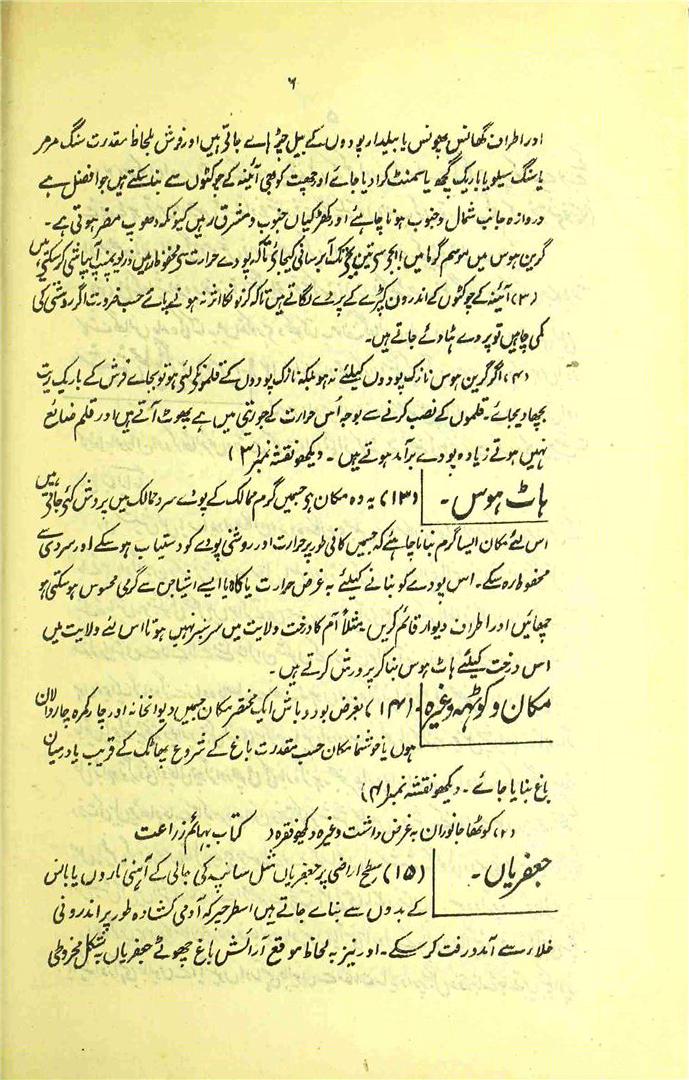 ۶
اور اطراف گھانس پھونس یا بیلدار پودوں کے بیل چڑہاے جاتی ہیں اور فرش بلحاظ مقدرت سنگ مرمر
یا سنگ سیلو یا باریک گچھ یا سمنٹ کرا دیا جاے اور چھت کو بھی آئینہ کے چوکٹوں سے بنا سکتے ہیں جو افضل ہے
دروازہ جانب شمال و جنوب ہونا چاہئے اور کھڑکیاں جنوب و مشرق رہیں کیونکہ دھوپ مضر ہوتی ہے۔
گرین ہوس میں موسم گرما میں تین تک آبرسانی کیجاے تاکہ پودے حرارت سی محفوظ رہیں ذریعہ پمپ آبپاشی کرسکتی ہیں
(۳) آئینہ کے چوکٹوں کے اندرون کپڑے کے پردے لگاتے ہیں تاکہ کرنونکا اثر نہ ہونے پائے حسب ضرورت اگر روشنی کی
کمی چاہیں تو پردے ہٹا دئے جاتے ہیں۔
(۴) اگر گرین ہوس نازک پودوں کیلئے نہ ہو بلکہ نازک پودوں کے قلمونکی لئی ہو تو بجاے فرش کے باریک ریت
بچھا دیجاے۔ قلموں کے نصب کرنے سے بوجہ اُس حرارت کے جو ریتی میں ہے پھوٹ آتے ہیں اور قلم ضائع
نہیں ہوتے زیادہ پودے برآمد ہوتے ہیں۔ دیکھو نقشہ نمبر (۳)
ہاٹ ہوس۔ (۱۳) یہ وہ مکان ہی جسمیں گرم ممالک کے پودے سرد ممالک میں پرورش کئی جاتی ہیں
اس لئے مکان ایسا گرم بنانا چاہئے کہ جسمیں کافی طور پر حرارت اور روشنی پودے کو دستیاب ہوسکے اور سردی سے
محفوظ رہ سکے۔ اس پودے کو بنانے کیلئے بہ غرض حرارت یا کاہ یا ایسے اشیا جس سے گرمی محسوس ہوسکتی ہو
چھائیں اور اطراف دیوار قائم کریں مثلاً آم کا درخت ولایت میں سرسبز نہیں ہوتا اس لئے ولایت میں
اس درخت کیلئے ہاٹ ہوس بنا کر پرورش کرتے ہیں۔
مکان و کوٹھہ وغیرہ (۱۴) بغرض بود و باش ایک مختصر مکان جسمیں دیوانخانہ اور چار کمرہ چار دالان
ہوں یا خوشنما مکان حسب مقدرت باغ کے شروع پھاٹک کے قریب یا درمیان
باغ بنایا جاے۔ دیکھو نقشہ نمبر (۴)
(۲) کوٹھا جانوران بہ غرض داشت وغیرہ دیکھو فقرہ کتاب بہائم زراعت
جعفریاں۔ (۱۵) سطح اراضی پر جعفریاں مثل سائبہ کی جالی کے آہنی تاروں یا بانس
کے بدوں سے بناے جاتے ہیں اسطرحپر کہ آدمی کشادہ طور پر اندرونی
خلا سے آمد و رفت کر سکے۔ اور نیز بہ لحاظ موقع آرائش باغ چھوٹے جعفریاں بشکل مخروطی